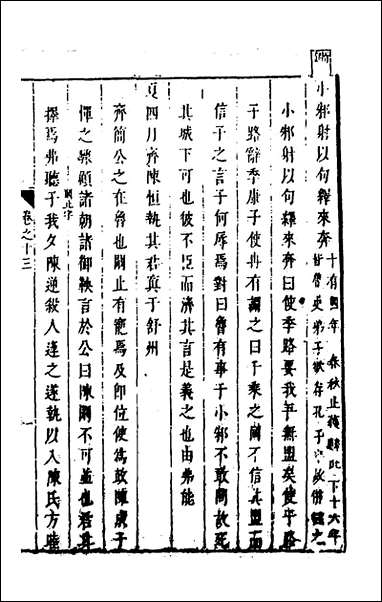 小邾射以句繹來奔 十有四年春秋止獲麟此下十六年皆魯史弟子欲存孔子卒故併錄之
小邾射以句繹來奔曰使季路要我吾無盟矣使子路
子路辭季康子使冉有謂之曰千乘之國不信其盟而
信子之言子何辱焉對曰魯有事于小邾不敢問故死
其城下可也彼不臣而濟其言是義之也由弗能
夏四月齊陳恒執其君寘于舒州
齊簡公之在魯也闞止有寵焉及即位使為政陳成子
憚之驟顧諸朝諸御鞅言於公曰陳闞不可並也君其
擇焉弗聽子我夕陳逆殺人逢之遂執以入陳氏方睦
闞止字
卷之十三
一